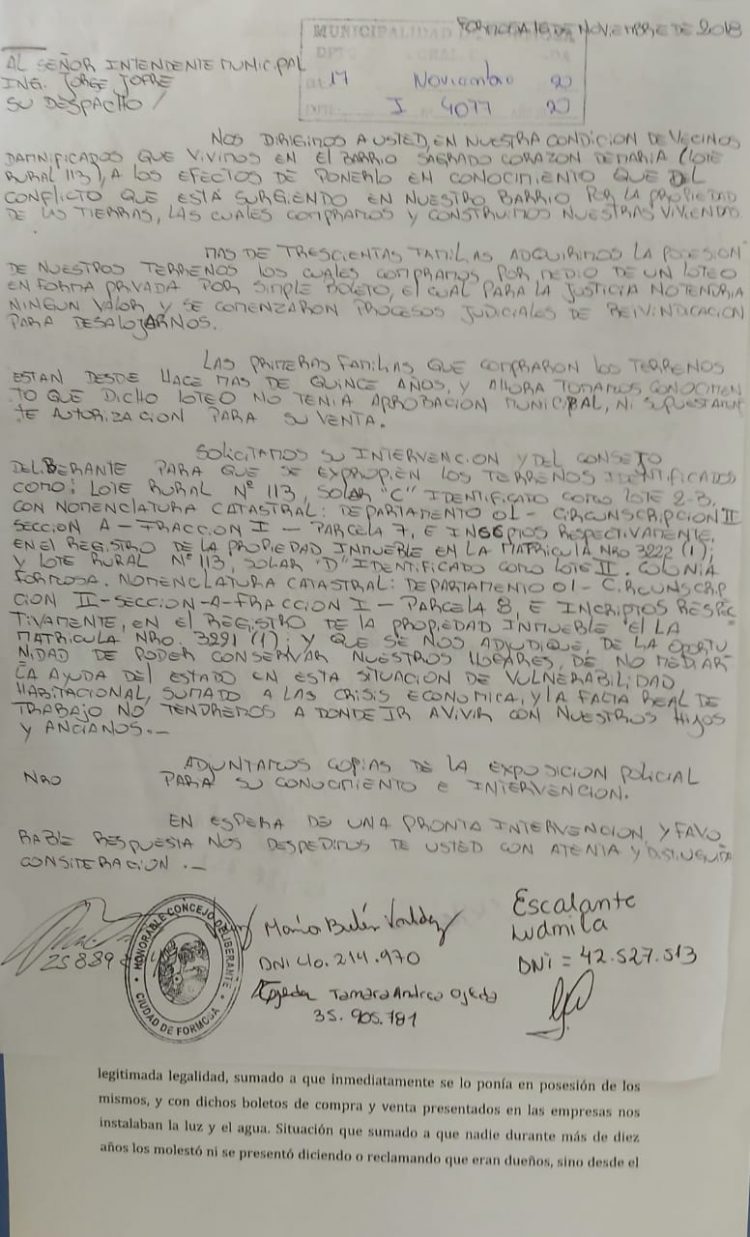 FORMOSA 16 DE NOVIEMBRE DE 2018
MUNICIPALIDAD
17 Noviembre 20
I 4077 20
AL SEÑOR INTENDENTE MUNICIPAL
ING. JORGE JOFRE
SU DESPACHO /
NOS DIRIGIMOS A USTED, EN NUESTRA CONDICION DE VECINOS
DAMNIFICADOS QUE VIVIMOS EN EL BARRIO SAGRADO CORAZON DE MARIA (LOTE
RURAL 113), A LOS EFECTOS DE PONERLO EN CONOCIMIENTO QUE DEL
CONFLICTO QUE ESTÁ SURGIENDO EN NUESTRO BARRIO POR LA PROPIEDAD
DE LAS TIERRAS, LAS CUALES COMPRAMOS Y CONSTRUIMOS NUESTRAS VIVIENDAS
.
MAS DE TRESCIENTAS FAMILIAS ADQUIRIMOS LA POSESION
DE NUESTROS TERRENOS LOS CUALES COMPRAMOS POR MEDIO DE UN LOTEO
EN FORMA PRIVADA POR SIMPLE BOLETO, EL CUAL PARA LA JUSTICIA NO TENDRIA
NINGUN VALOR Y SE COMENZARON PROCESOS JUDICIALES DE REIVINDICACION
PARA DESALOJARNOS.
LAS PRIMERAS FAMILIAS QUE COMPRARON LOS TERRENOS
ESTAN DESDE HACE MAS DE QUINCE AÑOS, Y AHORA TOMAMOS CONOCIMIEN
TO QUE DICHO LOTEO NO TENIA APROBACION MUNICIPAL, NI SUPUESTAMEN
TE AUTORIZACION PARA SU VENTA.
SOLICITAMOS SU INTERVENCION Y DEL CONSEJO
DELIBERANTE PARA QUE SE EXPROPIEN LOS TERRENOS IDENTIFICADOS
COMO: LOTE RURAL Nº 113, SOLAR "C" IDENTIFICADO COMO LOTE 2-B.
CON NOMENCLATURA CATASTRAL: DEPARTAMENTO 01- CIRCUNSCRIPCION II
SECCION A - FRACCION I - PARCELA 7, E RESPECTIVAMENTE,
EN EL REGISTRO DE LA PROPIEDAD INMUEBLE EN LA MATRICULA NRO 3222 (1);
Y LOTE RURAL Nº 113, SOLAR "D" IDENTIFICADO COMO LOTE II. COLONIA
FORMOSA. NOMENCLATURA CATASTRAL: DEPARTAMENTO 01- CIRCUNSCRIP
CION II-SECCION-A-FRACCION I - PARCELA 8, E INCRIPTOS RESPEC
TIVAMENTE, EN EL REGISTRO DE LA PROPIEDAD INMUEBLE EN LA
MATRICULA NRO. 3291 (1); Y QUE SE NOS ADJUDIQUE, DE LA OPORTU
NIDAD DE PODER CONSERVAR NUESTROS HOGARES, DE NO MEDIAR
LA AYUDA DEL ESTADO EN ESTA SITUACION DE VULNERABILIDAD
HABITACIONAL, SUMADO A LAS CRISIS ECONOMICA, Y LA FALTA REAL DE
TRABAJO NO TENDREMOS A DONDE IR A VIVIR CON NUESTROS HIJOS
Y ANCIANOS.-
ADJUNTAMOS COPIAS DE LA EXPOSICION POLICIAL
NRO PARA SU CONOCIMIENTO E INTERVENCION.
EN ESPERA DE UNA PRONTA INTERVENCION, Y FAVO
RABLE RESPUESTA NOS DESPEDIMOS DE USTED CON ATENTA Y DISTINGUIDA
CONSIDERACION.-
25889
HONORABLE CONCEJO DELIBERANTE
CIUDAD DE FORMOSA
María Belén Valdez
DNI 40.214.970
Ojeda Tamara Andrea Ojeda
35.905.781
Escalante
Ludmila
DNI = 42.527.513
legitimada legalidad, sumado a que inmediatamente se lo ponía en posesión de los
mismos, y con dichos boletos de compra y venta presentados en las empresas nos
instalaban la luz y el agua. Situación que sumado a que nadie durante más de diez
años los molestó ni se presentó diciendo o reclamando que eran dueños, sino desde el